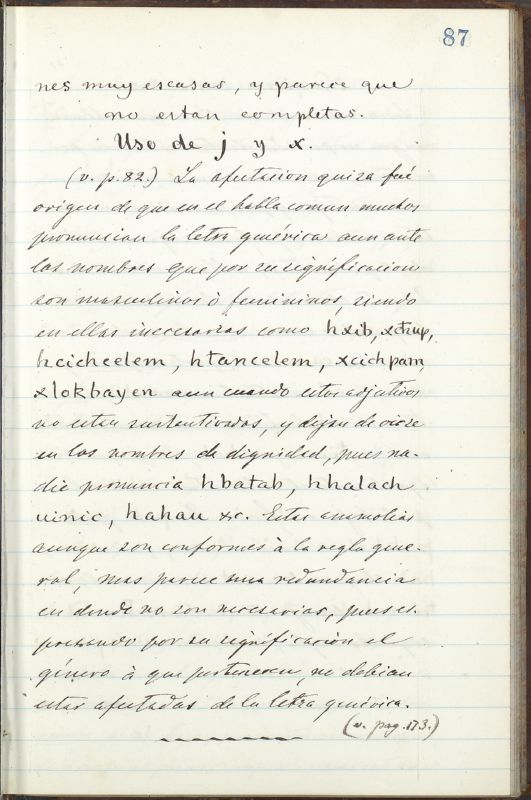 87
nes muy escasas, y parece que
no estan completas.
Uso de j y x.
(v. p. 82.) La afectacion quiza fué
origen de que en el habla comun muchos
pronuncian la letra genérica aun ante
los nombres que por su significacion
son masculinos ò femininos, siendo
en ellas inecesarias como hxib, xchup,
hcichcelem, htancelem, xcichpam,
xlokbayen aun cuando estos adjetivos
no estan sustantivados, y dejan de oirse
en los nombres de dignidad, pues na-
die pronuncia hbatab, hhalach
uinic, hahau &c. Estas anomalias
aunque son conformes à la regla gene-
ral, mas parece una redundancia
en donde no son necesarias, pues es-
presando por su significacion el
género à que pertenecen, no debian
estar afectadas de la letra genérica.
(v. pag. 173.)